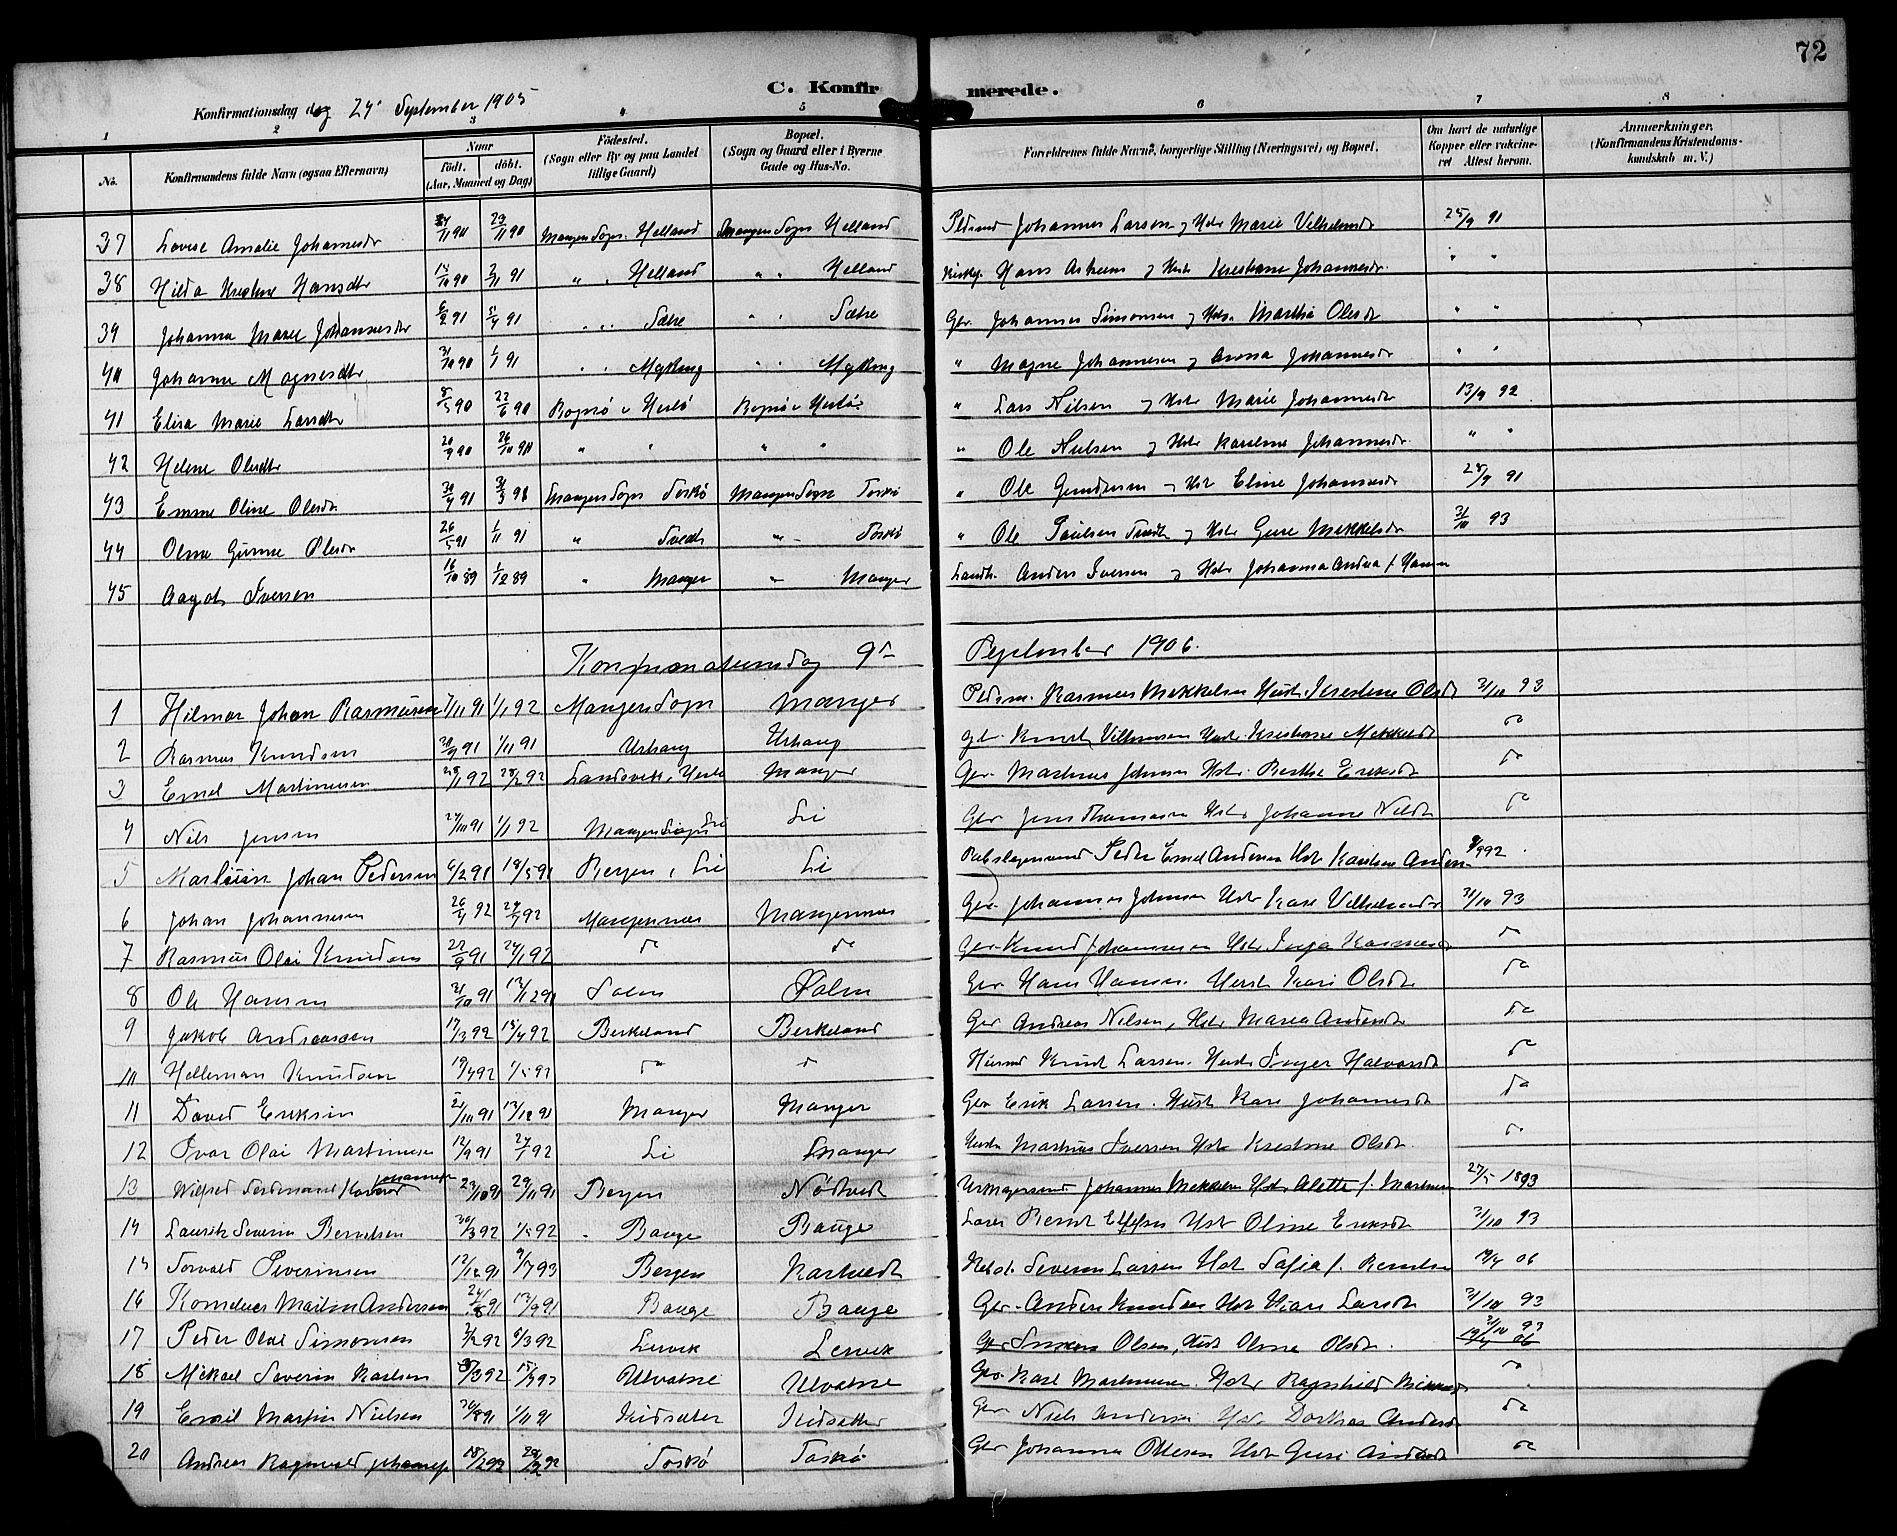 72
C. Konfirmerede.
Konfirmationsdag den 24' September 1905
1 2 3 4 5 6 7 8
No. Konfirmandens fulde Navn (ogsaa Efternavn) Naar født. døbt. (Aar, Maaned og Dag) Fødested. (Sogn eller By og paa Landet tillige Gaard) Bopæl. (Sogn og Gaard eller i Byerne Gade og Hus-No. Forældrenes fulde Navne, borgerlige Stilling (Næringsvei) og Bopæl. Om havt de naturlige Kopper eller vakcineret Attest herom. Anmærkninger. (Konfirmandens Kristendomskundskab m. V.)
37 Lovise Amalie Johannesdr 23/11 90 Manger Sogn Helland Manger Sogn Helland Johannes Larsen og Hstr Marie Vilhelmsdr 25/9 91
38 Hilda Kristine Hansdtr 18/10 90 2/11 91 " " Helland " " Helland Kirkesg. Hans Askeem og Hstr Kristiane Johannesdr " "
39 Johanna Marie Johannesdr 6/2 91 91 " " Sætre " " Sætre Gbr. Johannes Simonsen og Hstr. Martha Olesdr " "
40 Johanne Magnesdtr 31/10 90 1/1 91 " " Myking " " Myking " Magne Johannesen og Anna Johannesdr " "
41 Elisa Marie Larsdtr 8/5 90 22/6 90 Bognø i Herlø Bognø i Herlø " Lars Nilsen og Hstr Marie Johannesdr 13/9 92
42 Helene Olesdtr 20/9 90 26/10 90 " " " " " Ole Nielsen og Hstr Karoline Johannesdr " "
43 Emma Oline Olesdr 30/4 91 31/5 91 Manger Sogn Toskø Manger Sogn Toskø " Ole og Hstr Eline Johannesdr 25/9 91
44 Oline Gurine Olesdr 26/5 91 1/11 91 " Tvedt " Toskø " Ole Paulsen Tvedt og Hstr Guri Mikkelsdr 31/10 93
45 Aagot Iversen 16/10 89 1/12 89 " Manger " Manger Landh. Anders Iversen og Hstr Johanna Andrea f. Hansen
Konfirmationsdag 9de September 1906.
1 Hilmar Johan Rasmusen 7/11 91 1/1 92 Manger Sogn Manger Rasmus Mikkelsen Hustr. Kristine Olsdr 31/10 93
2 Rasmus Knudsen 91 1/11 91 Urhaug Urhaug Gbr. Knut Villumsen Hustr. Kristiane Mikkelsdr do
3 Emil Martinusen 92 28/2 92 Landsvik, Herlø Manger Gbr. Martinus Johnsen Hstr. Berthe Eriksdr do
4 Nils Jensen 91 1/1 92 Manger Sogn Li Li Gbr Jens Thomasen Hstr Johanne Nilsdr do
5 Martin Johan Pedersen 6/2 91 91 Bergen, Li Li Rebslagersvend Peder Emil Andersen Hstr Karoline Andersen 92
6 Johan Johannesen 26/4 92 92 Mangernæs Mangernæs Gbr. Johannes Johnsen Hstr Kari Vilhelmsdr 31/10 93
7 Rasmus Olai Knudsen 22/9 91 24/1 92 do do Gbr. Knud Johannesen Hstr Inga Rasmusdr do
8 Ole Hansen 31/10 91 13/12 91 Solm Gbr Hans Hansen. Hustr Kari Olsdr do
9 Jakob Andreassen 17/3 92 18/4 92 Birkeland Birkeland Gbr Andreas Nilsen, Hstr Maria Andersdr do
10 Helleman Knudsen 19/4 92 1/5 92 do do Husmd Knut Larsen. Hustr Inger Halvorsdr do
11 David Eriksen 91 13/12 91 Manger Manger Gbr Erik Larsen. Hustr Kari Johannesdr do
12 Ivar Olai Martinusen 12/9 91 92 Li Manger Martinus Iversen Hstr Kristine Olsdr do
13 Wilfred Ferdinand Johannesen 23/10 91 29/11 91 Bergen Nødtvedt Urmagersvend Johannes Mikkelsen Hstr Alette f. Martinsen 27/5 1893
14 Laurits Severin Berntsen 30/3 92 1/5 92 " Bauge Bauge Bernt Hstr Oline Eriksdr 31/10 93
15 Torvald Severinsen 12/12 91 9/7 93 Bergen Kartvedt Severin Larsen Hstr Sofia f. Berntsen 19/4 06
16 Kornelius Martin Andersen 24/8 91 13/9 91 Bauge Bauge Gbr. Anders Knudsen Hstr Kari Larsdr 31/10 93
17 Peder Olai Simonsen 2/2 92 6/3 92 Lervik Lervik Gbr Simon Olsen, Hustr Oline Olsdr. 31/10 93
19/4 06
18 Mikael Severin Karlsen 92 92 Ulvatne Ulvatne Gbr. Karl Martinusen. Hstr Ragnhild Mikkelsdr do
19 Emil Martin Nielsen 30/8 91 1/11 91 Kidsæter Kidsæter Gbr Niels Andersen Hstr Dorthea Andersdr do
20 Andreas Ragnvald Johannesen 18/2 92 92 Toskø Toskø Gbr Johannes Ottesen Hstr Guri Andersdr do